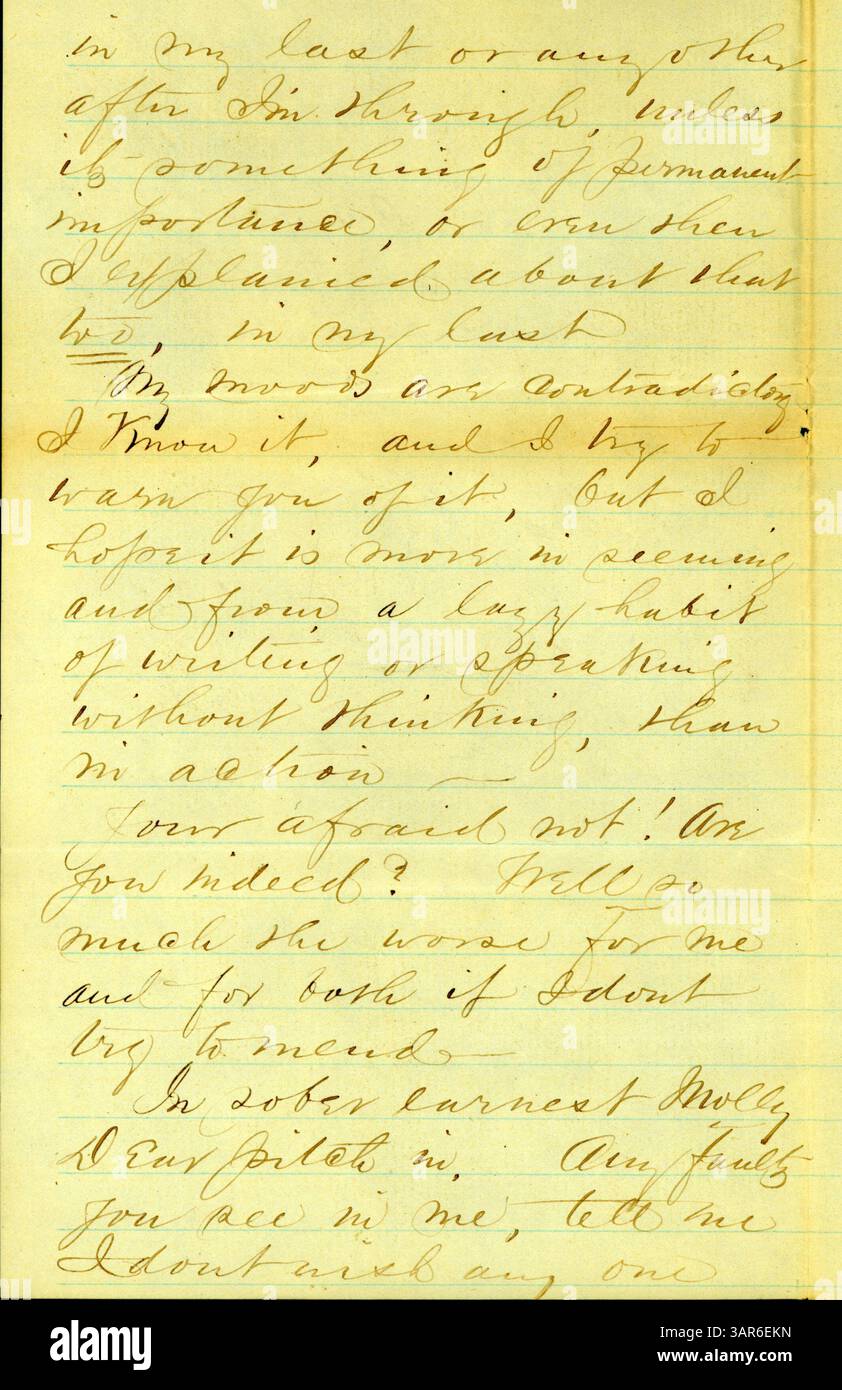 in my last or any other
after I'm through, unless
its something of permanent
importance, or even then
I explained about that
too, in my last
My moods are contradictory
I Know it, and I try to
warn you of it, but I
hope it is more in seeming
and from a lazy habit
of writing or speaking
without thinking, than
in action —
Your afraid not! Are
you indeed? Well so
much the worse for me
and for both if I dont
try to mend —
In sober earnest Molly
Dear pitch in. Any faults
you see in me, tell me
I dont wish any one
alamy
Image ID: 3AR6EKN
www.alamy.com